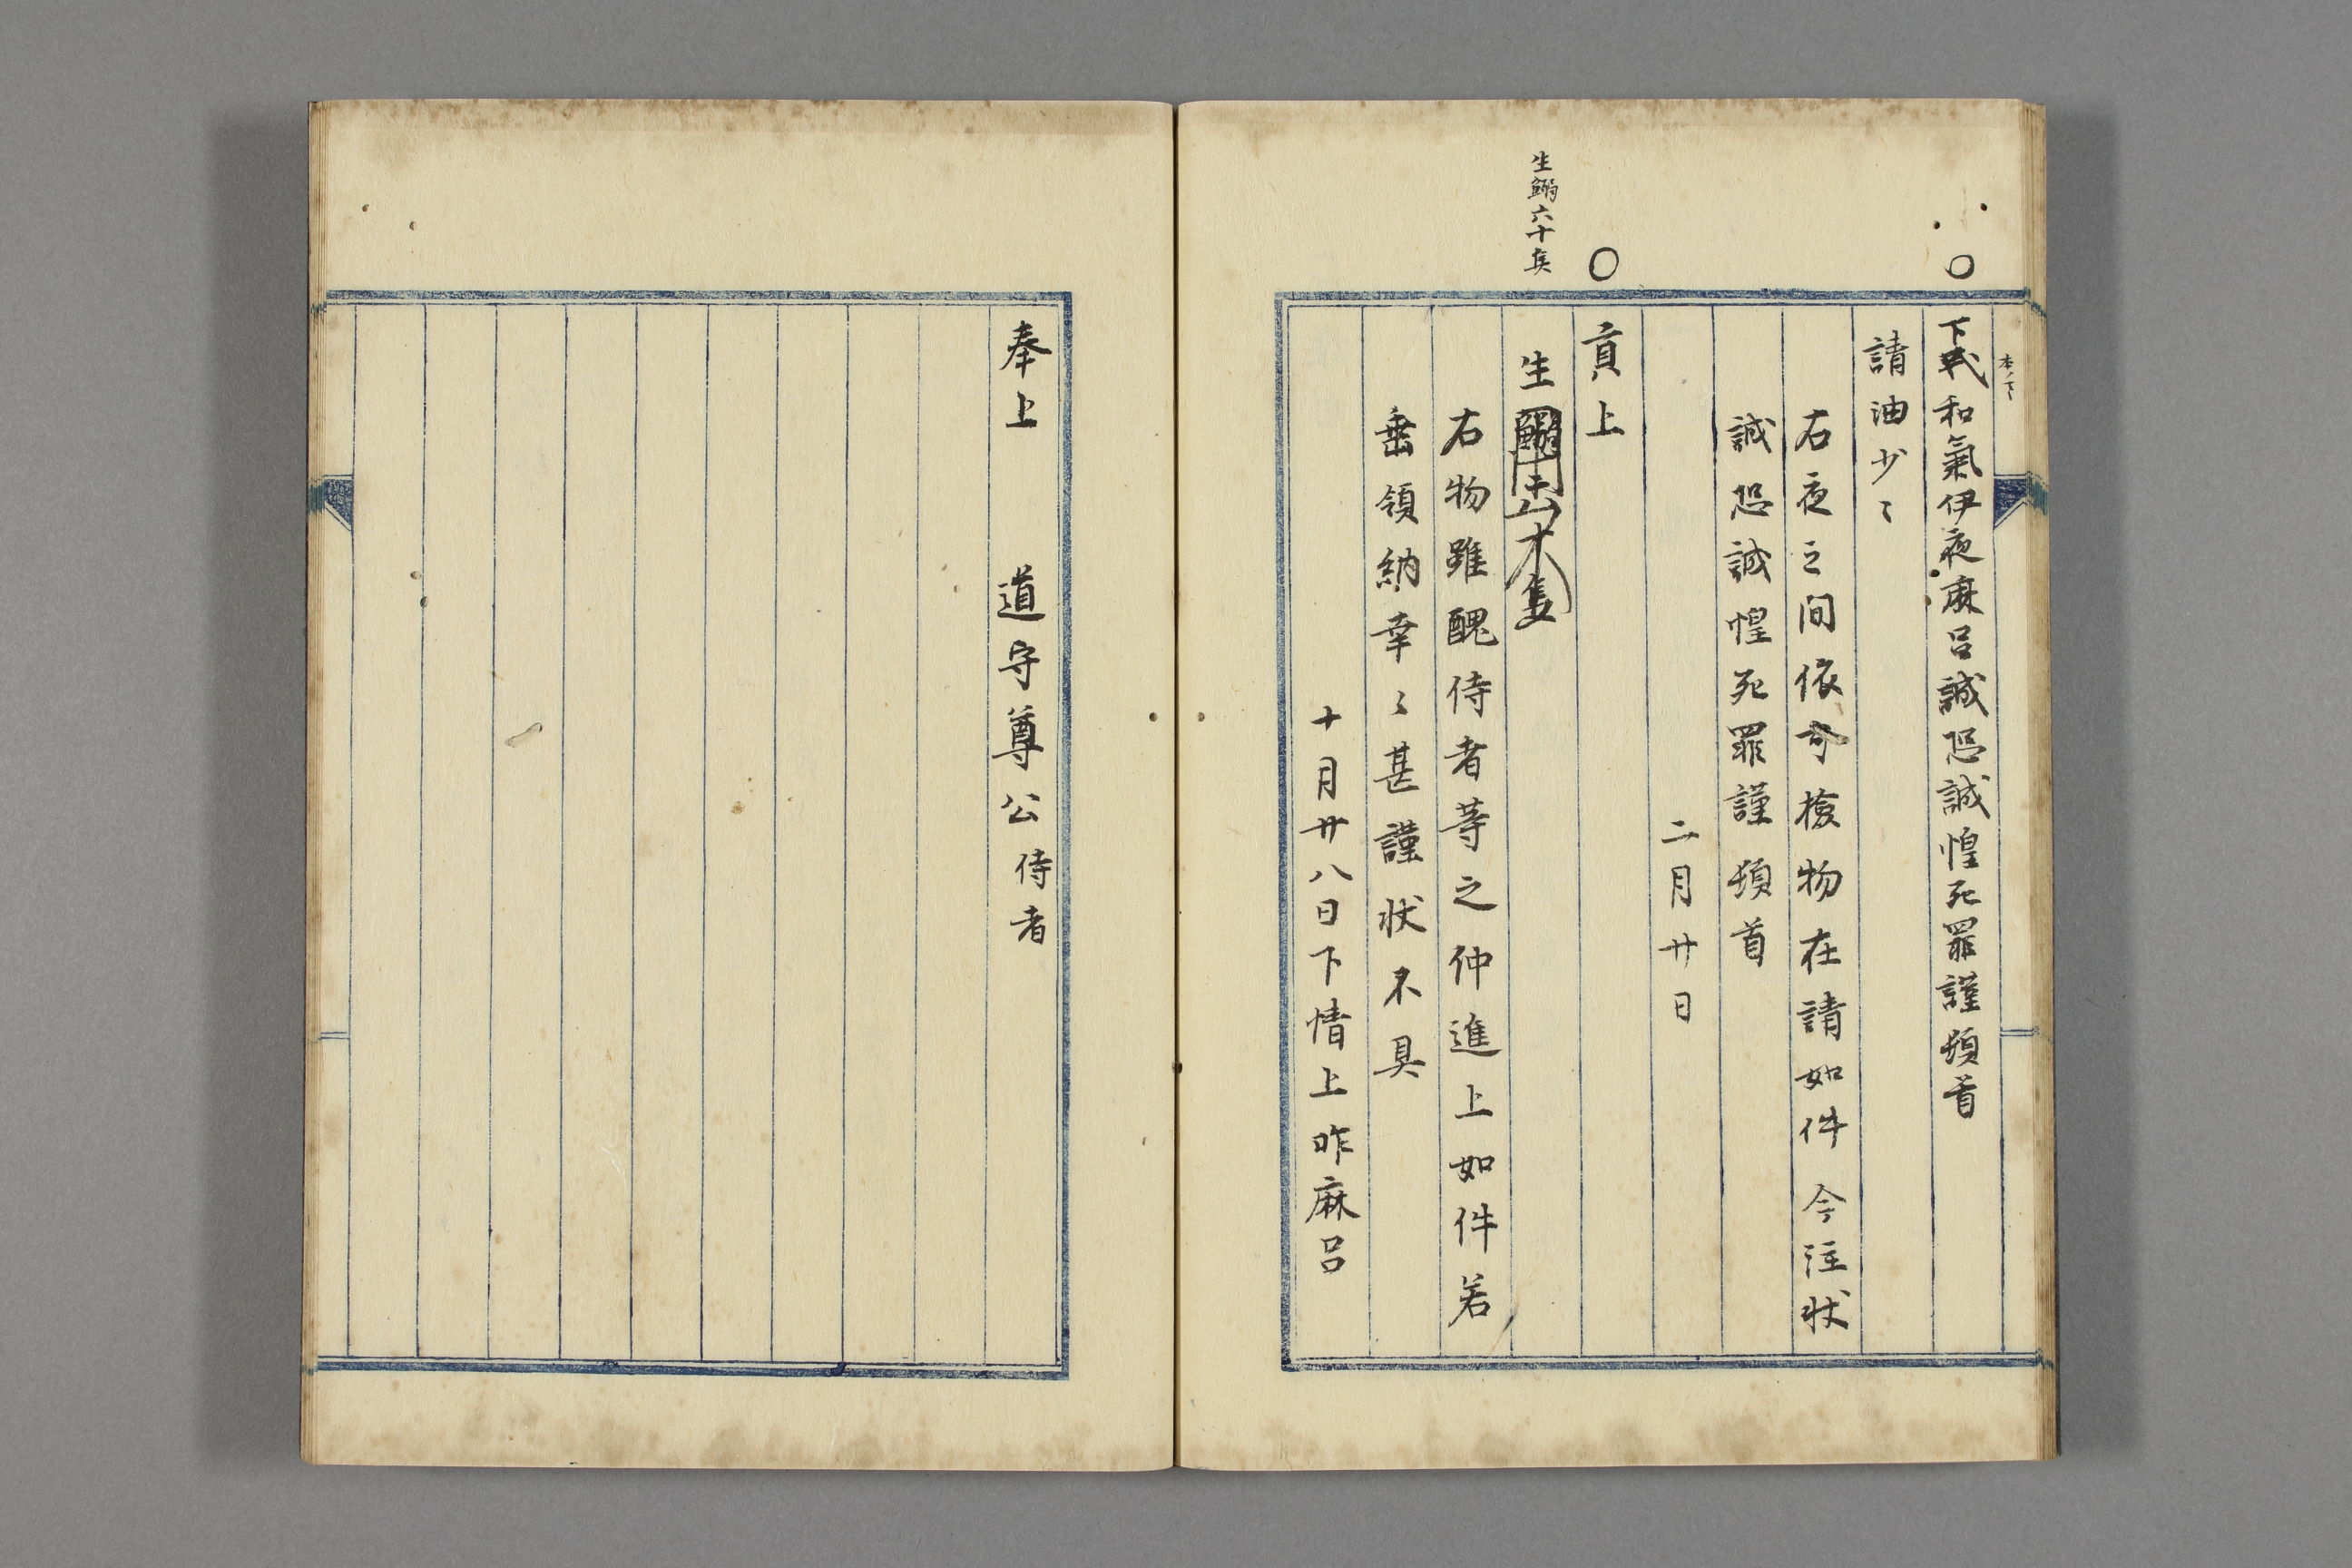 ○
下民和氣伊夜麻呂誠恐誠惶死罪謹頓首
請油少〻
右夜之間依可撿物在請如件今注状
誠恐誠惶死罪謹頓首
二月廿日
○
貢上
生鰯六十隻
生
隻
右物雖醜侍者等之仲進上如件若
垂領納幸〻甚謹状不具
十月廿八日下情上昨麻呂
奉上 道守尊公侍者